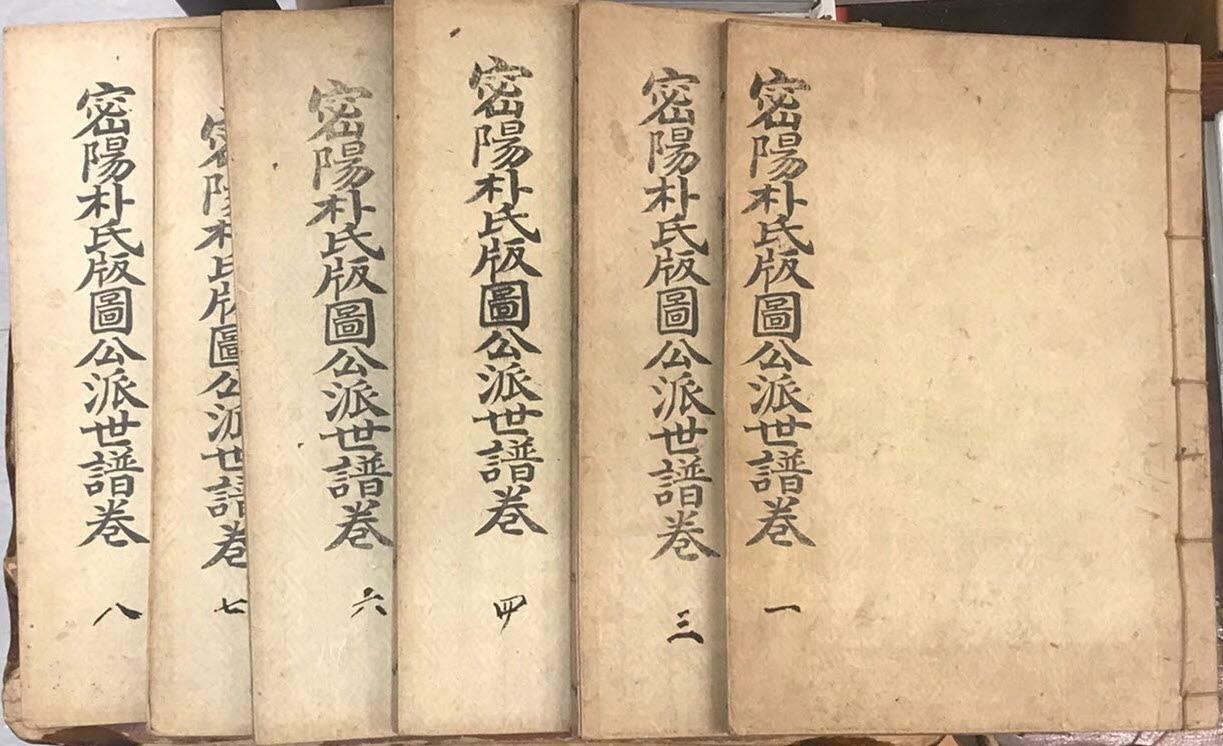 密陽朴氏版圖公派世譜巻 一
密陽朴氏版圖公派世譜巻 三
密陽朴氏版圖公派世譜巻 四
密陽朴氏版圖公派世譜巻 六
密陽朴氏版圖公派世譜巻 七
密陽朴氏版圖公派世譜巻 八